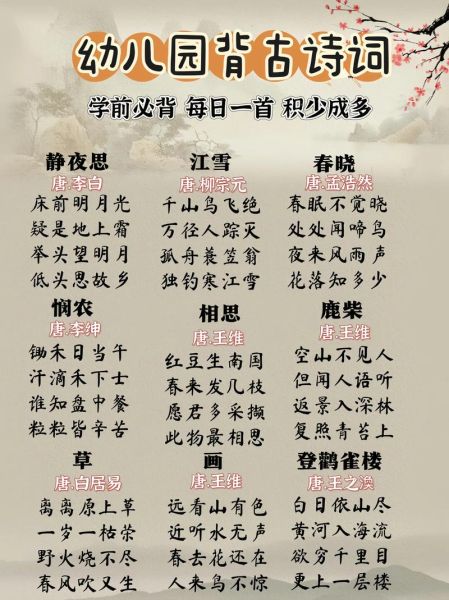 幼儿园背古诗词
学前必背 每日一首 积少成多
静夜思
唐.李白
床前明月光
疑是地上霜
举头望明月
低头思故乡
江雪
唐.柳宗元
千山鸟飞绝
万径人踪灭
孤舟蓑笠翁
独钓寒江雪
春晓
唐.孟浩然
春眠不觉晓
处处闻啼鸟
夜来风雨声
花落知多少
悯农
唐.李绅
锄禾日当午
汗滴禾下土
谁知盘中餐
粒粒皆辛苦
相思
唐.王维
红豆生南国
春来发几枝
愿君多采撷
此物最相思
鹿柴
唐.王维
空山不见人
但闻人语听
返景入深林
复照青苔上
草
唐.白居易
离离原上草
一岁一枯荣
野火烧不尽
春风吹又生
画
唐.王维
远看山有色
近听水无声
春去花还在
人来鸟不惊
登鹳雀楼
唐.王之涣
白日依山尽
黄河入海流
欲穷千里目
更上一层楼